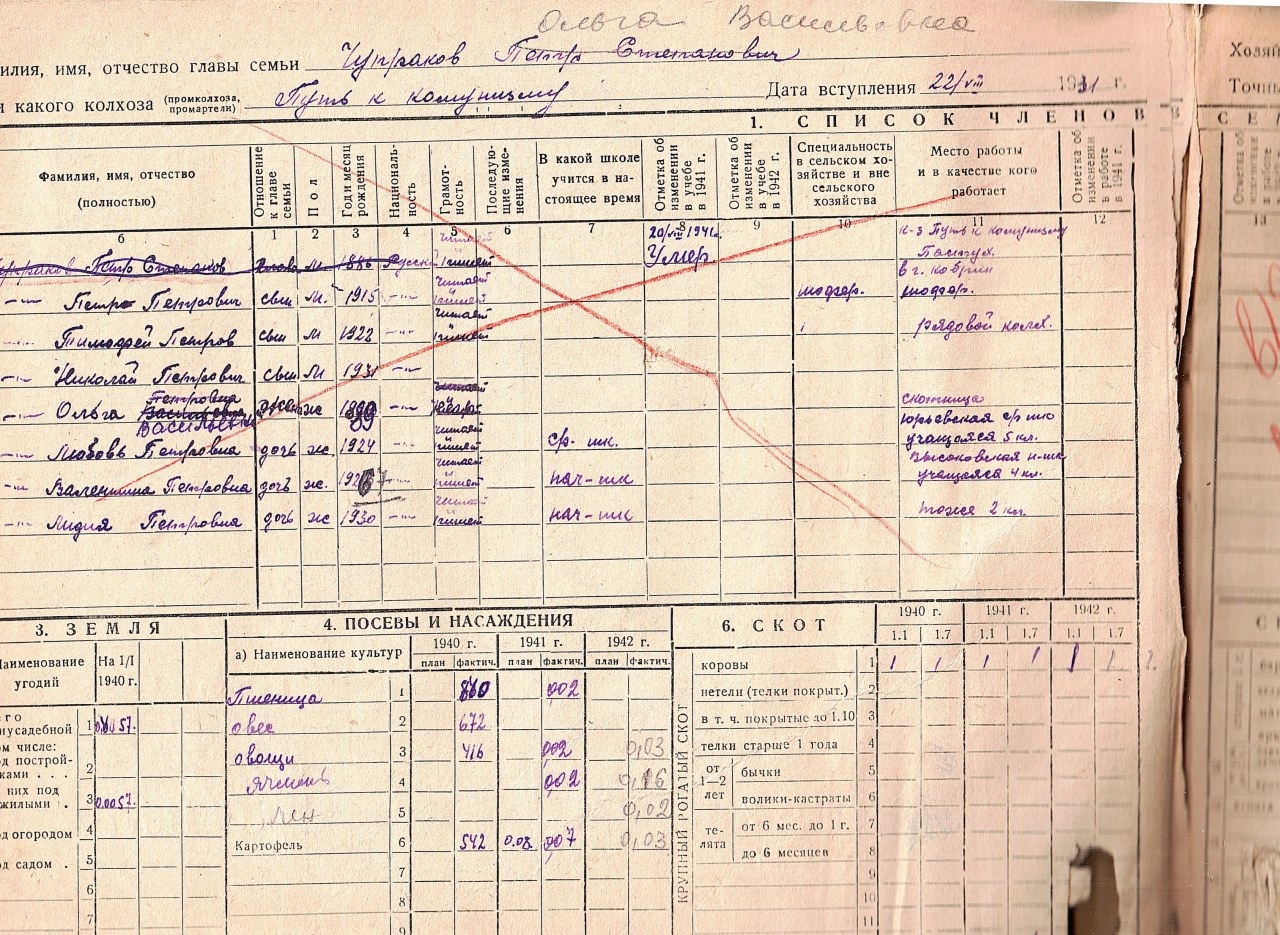 Ольга Васильевна
илия, имя, отчество главы семьи Чупраков Петр Степанович
и какого колхоза (промколхоза, промартели) Путь к комунизму Дата вступления 22/VIII 1931 г.
1. СПИСОК ЧЛЕНОВ СЕМ
Хозяй
Точны
Фамилия, имя, отчество (полностью)
Отношение к главе семьи
Пол
Год и месяц рождения
Националь-ность
Грамот-ность
Последую-щие изме-нения
В какой школе учится в на-стоящее время
Отметка об изменении в учебе в 1941 г.
Отметка об изменении в учебе в 1942 г.
Специальность в сельском хо-зяйстве и вне сельского хозяйства
Место работы и в качестве кого работает
Отметка об изменении в работе в 1941 г.
б 1 2 3 4 5 6 7 8 9 10 11 12 13
Чупраков Петр Степанов Глава м 1886 Русск читает пишет 20/VIII 1941г. Умер. к-з Путь к комунизму Пастух.
—"— Петр Петрович сын м. 1915 —"— читает пишет шофер. в г. Кобрин шофер.
—"— Тимофей Петров сын м 1922 —"— читает пишет рядовой колх.
—"— Николай Петрович сын м 1931 —"—
—"— Ольга Петровна Васильевна Васильевн жена ж 1899 89 —"— читает скотница
—"— Любовь Петровна дочь ж. 1924 —"— читает пишет ср. шк. Юрьевская ср шк учащаяся 5 кл.
—"— Валентина Петровна дочь ж. 1927 —"— читает пишет нач-шк Высоковская н-шк учащаяся 4 кл.
—"— Лидия Петровна дочь ж 1930 —"— читает пишет нач-шк тоже 2 кл.
3. ЗЕМЛЯ
Наименование угодий На 1/I 1940 г.
его
иусадебной 1
ом числе:
од построй-
ками . . . 2
них под
жилыми . 3 0.0057.
од огородом 4
од садом . 5
6
7
4. ПОСЕВЫ И НАСАЖДЕНИЯ
а) Наименование культур 1940 г. 1941 г. 1942 г.
план фактич. план фактич. план фактич.
Пшеница 1 002
овес 2 672
овощи 3 416 002 0,03
ячмень 4 002 0,16
лен 5 0,02
Картофель 6 542 0.08 007 0,03
7
8
9
6. СКОТ
1940 г. 1941 г. 1942 г.
1.1 1.7 1.1 1.7 1.1 1.7
КРУПНЫЙ РОГАТЫЙ СКОТ
коровы 1 1 1 1 1 1 1
нетели (телки покрыт.) 2
в т. ч. покрытые до 1.10 3
телки старше 1 года 4
от 1—2 лет
бычки 5
волики-кастраты 6
те-лята
от 6 мес. до 1 г. 7
до 6 месяцев 8
9
10
11